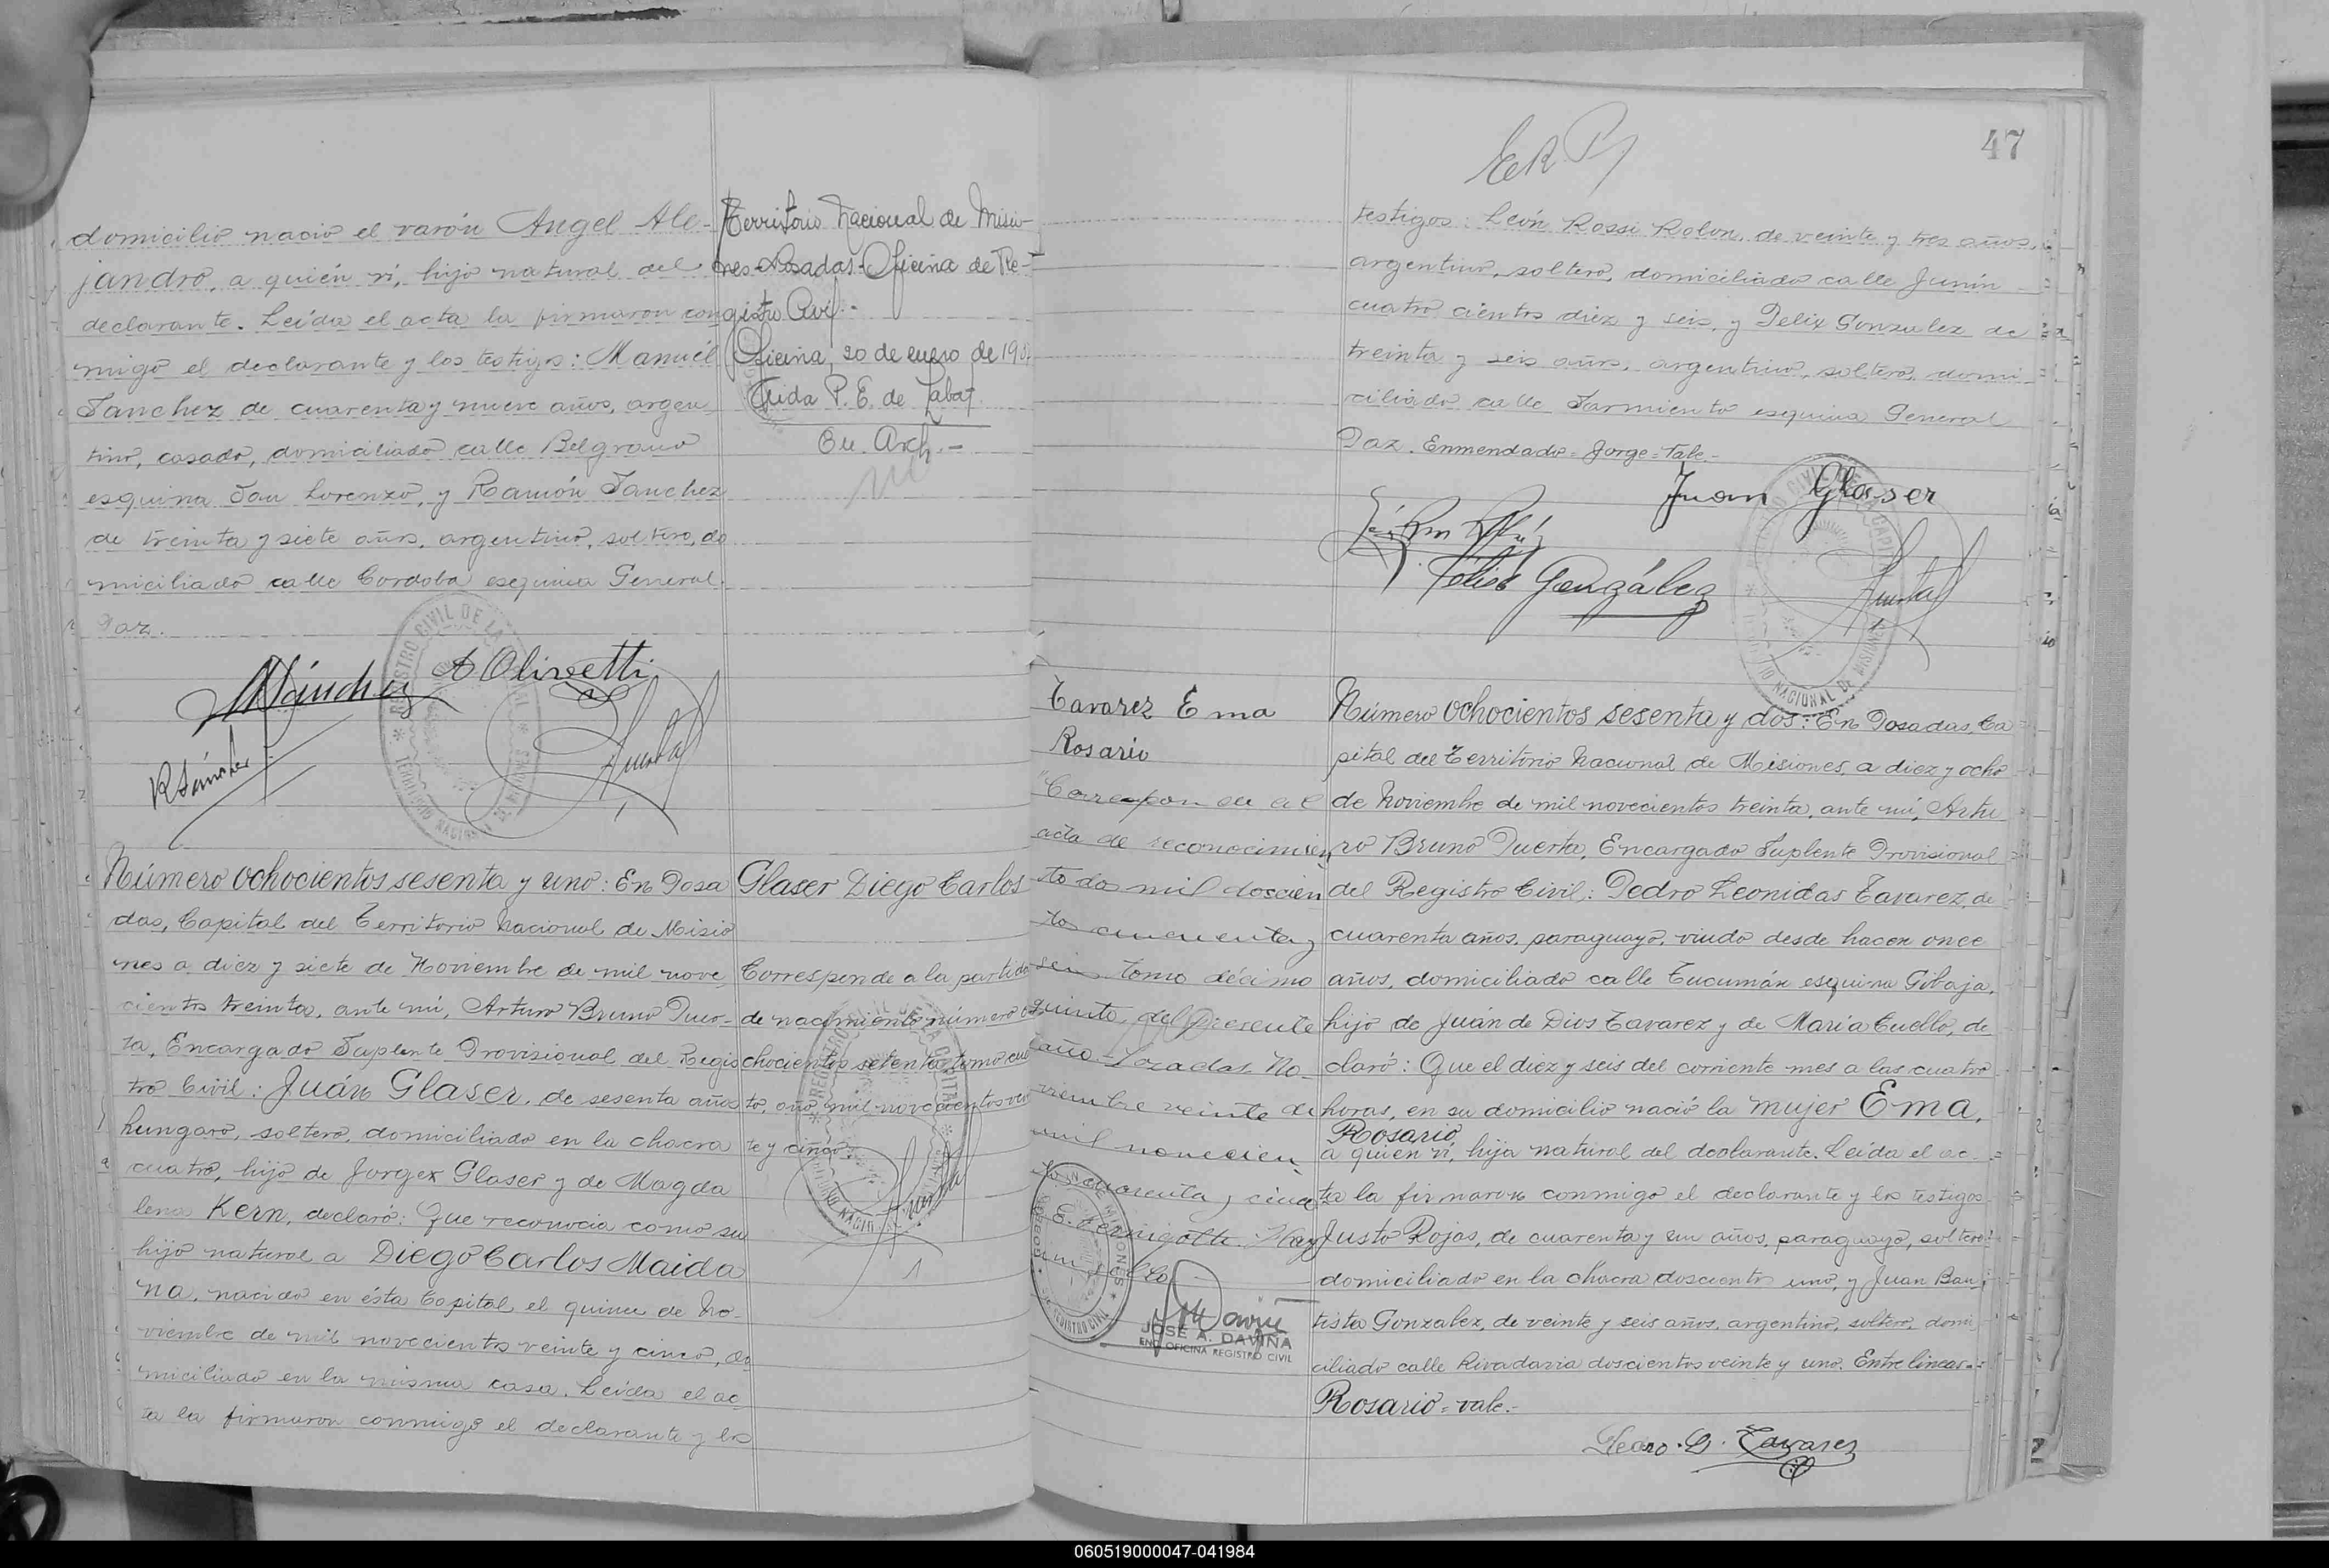 domicilio nació el varón Angel Ale-
jandro, a quién ví, hijo natural del
declarante. Leída el acta la firmaron con
migo el declarante y los testigos: Manuel
Sanchez de cuarenta y nueve años, argen
tino, casado, domiciliado calle Belgrano
esquina San Lorenzo, y Ramón Sanchez
de treinta y siete años, argentino, soltero, do
miciliado calle Cordoba esquina General
Paz.
MSánchez A Olivetti
RSánchez
REGISTRO CIVIL DE LA CAPITAL
TERRITORIO NACIONAL DE MISIONES
Territorio Nacional de Misio-
nes-Posadas-Oficina de Re-
gistro Civil.-
Oficina, 20 de enero de 193
P. E. de Labat
En Arch.-
Número ochocientos sesenta y uno: En Posa
das, Capital del Territorio Nacional de Misio
nes a diez y siete de Noviembre de mil nove
cientos treinta, ante mí, Arturo Bruno Puer-
ta, Encargado Suplente Provisional del Regis
tro Civil: Juán Glaser, de sesenta años
hungaro, soltero, domiciliado en la chacra
cuatro, hijo de Jorge Glaser y de Magda
lena Kern, declaró: Que reconocia como su
hijo natural a Diego Carlos Maida
na, nacido en ésta Capital el quince de No-
viembre de mil novecientos veinte y cinco, do
miciliado en la misma casa. Leída el ac
ta la firmaron conmigo el declarante y los
Glaser Diego Carlos
Corresponde a la partida
de nacimiento número o
chocientos setenta, tomo cuar
to, año mil novecientos vein
te y cinco.
47
testigos: León Rossi Rolon, de veinte y tres años,
argentino, soltero, domiciliado calle Junín
cuatro cientos diez y seis, y Felix Gonzalez de
treinta y seis años, argentino, soltero, domi
ciliado calle Sarmiento esquina General
Paz. Enmendado=Jorge=Vale.-
Juan Glaser
Felix González
Tavarez Ema
Rosario
Corresponde al
acta de reconocimien
to dos mil doscien
tos cincuenta y
seis tomo décimo
quinto, del presente
año.- Posadas No-
viembre veinte de
mil novecien
tos cuarenta y cinco
JOSE A. DAVIÑA
ENC. OFICINA REGISTRO CIVIL
Número ochocientos sesenta y dos: En Posadas, Ca
pital del Territorio Nacional de Misiones, a diez y ocho
de Noviembre de mil novecientos treinta, ante mí, Artu
ro Bruno Puerta, Encargado Suplente Provisional
del Registro Civil: Pedro Leonidas Tavarez, de
cuarenta años, paraguayo, viudo desde hacen once
años, domiciliado calle Tucumán esquina Gibaja,
hijo de Juán de Dios Tavarez y de Maria Cuello, de
claró: Que el diez y seis del corriente mes a las cuatro
horas, en su domicilio nació la mujer Ema,
Rosario
a quien ví, hija natural del declarante. Leída el ac-
ta la firmaron conmigo el declarante y los testigos
Justo Rojas, de cuarenta y un años, paraguayo, soltero
domiciliado en la chacra doscientos uno, y Juan Bau
tista Gonzalez, de veinte y seis años, argentino, soltero, domi
ciliado calle Rivadavia doscientos veinte y uno. Entre lineas=
Rosario=vale.-
Pedro.L.Tavarez
060519000047-041984